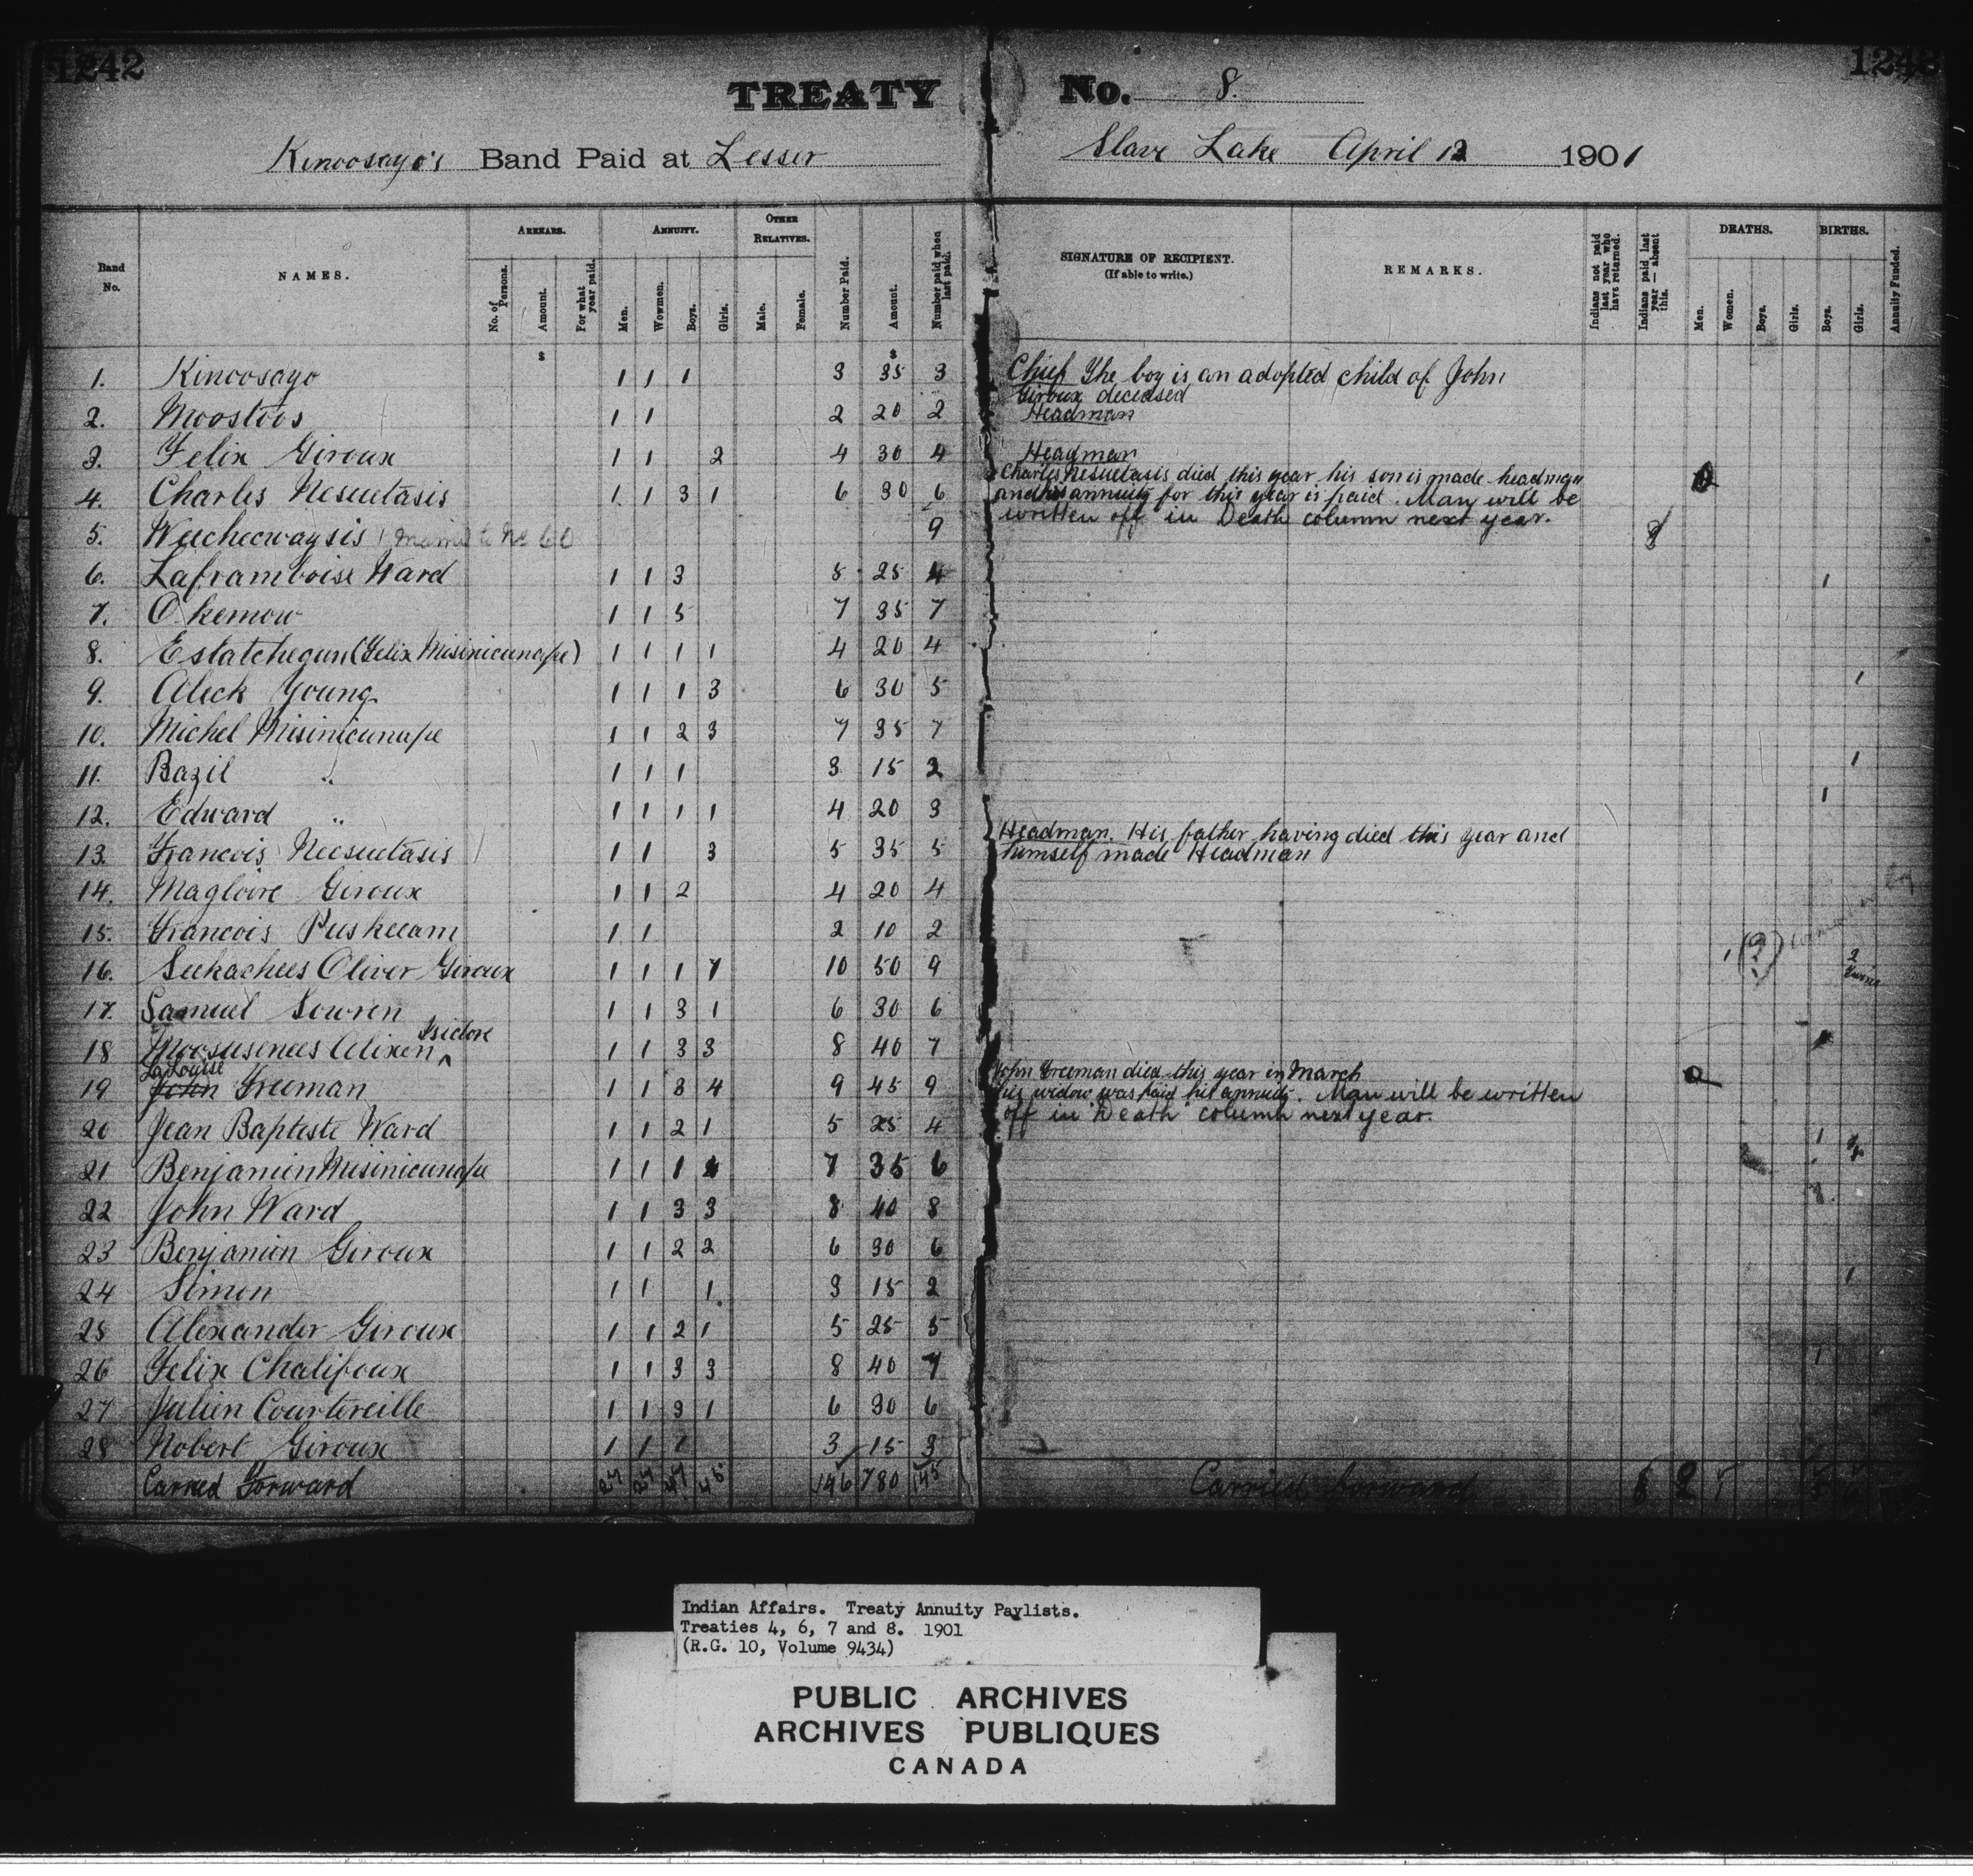 1242
TREATY No. 8.
Kinoosayo's Band Paid at Lesser Slave Lake April 12 1901
Band No.
NAMES.
ARREARS.
No. of Persons.
Amount.
For what year paid.
ANNUITY.
Men.
Wowmen.
Boys.
Girls.
OTHER RELATIVES.
Male.
Female.
Number Paid.
Amount.
Number paid when last paid.
SIGNATURE OF RECIPIENT.
(If able to write.)
REMARKS.
Indians not paid last year who have returned.
Indians paid last year — absent this.
DEATHS.
Men.
Women.
Boys.
Girls.
BIRTHS.
Boys.
Girls.
Annuity Funded.
$ $
1. Kinoosayo 1 1 1 3 35 3 Chief The boy is an adopted child of John
Giroux deceased
2. Moostoos 1 1 2 20 2 Headman
3. Felix Giroux 1 1 2 4 30 4 Headman
4. Charles Nesuetasis 1 1 3 1 6 30 6 Charles Nesuetasis died this year his son is made headman
and his annuity for this year is paid. Man will be
written off in Death column next year.
5. Weecheewaysis No 60 9 8
6. Laframboise Ward 1 1 3 5 25 4 1
7. Okemow 1 1 5 7 35 7
8. Estatchegun (Felix Misinicunape) 1 1 1 1 4 20 4
9. Aleck Young 1 1 1 3 6 30 5 1
10. Michel Misinicunape 1 1 2 3 7 35 7
11. Bazil " 1 1 1 3 15 2 1
12. Edward " 1 1 1 1 4 20 3 1
13. Francois Neesuetasis 1 1 3 5 35 5 Headman. His father having died this year and
himself made Headman
14. Magloire Giroux 1 1 2 4 20 4
15. Francois Puskeeam 1 1 2 10 2
16. Seekachees Oliver Giroux 1 1 1 7 10 50 9 1 (2) 2
17. Samuel Sowren 1 1 3 1 6 30 6
18 Moosusenees Alixen Isidore 1 1 3 3 8 40 7
LaLouise
19 John Freeman 1 1 3 4 9 45 9 John Freeman died this year in March
his widow was paid his annuity. Man will be written
off in "Death" column next year.
20 Jean Baptiste Ward 1 1 2 1 5 25 4 1
21 Benjamin Misinicunape 1 1 1 4 7 35 6
22 John Ward 1 1 3 3 8 40 8
23 Benjamin Giroux 1 1 2 2 6 30 6
24 Simon 1 1 1 3 15 2 1
25 Alexander Giroux 1 1 2 1 5 25 5
26 Felix Chalifoux 1 1 3 3 8 40 7 1
27 Julien Courtoreille 1 1 3 1 6 30 6
28 Nobert Giroux 1 1 1 3 15 3
Carried Forward 27 27 47 45 146 780 145 Carried forward 8 2 1
Indian Affairs. Treaty Annuity Paylists.
Treaties 4, 6, 7 and 8. 1901
(R.G. 10, Volume 9434)
PUBLIC ARCHIVES
ARCHIVES PUBLIQUES
CANADA